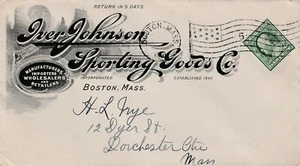 RETURN IN 5 DAYS
Iver Johnson
Sporting Goods Co.
MANUFACTURERS
IMPORTERS
WHOLESALERS
AND
RETAILERS
INCORPORATED
ESTABLISHED
BOSTON, MASS.
BOSTON, MASS.
H L Frye
12 Dyer St.
Dorchester Ctre
Mass